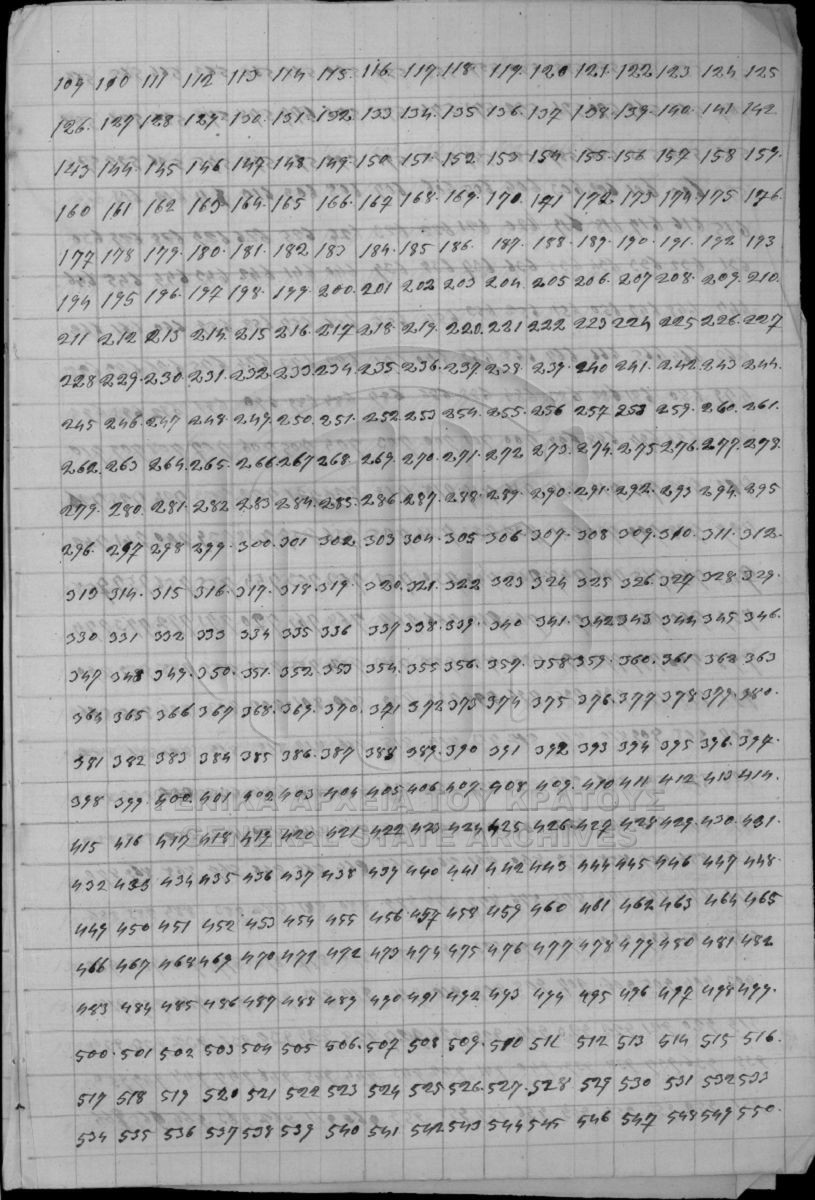 109 110 111 112 113 114 115 116 117 118 119 120 121 122 123 124 125
126 127 128 129 130 131 132 133 134 135 136 137 138 139 140 141 142
143 144 145 146 147 148 149 150 151 152 153 154 155 156 157 158 159
160 161 162 163 164 165 166 167 168 169 170 171 172 173 174 175 176
177 178 179 180 181 182 183 184 185 186 187 188 189 190 191 192 193
194 195 196 197 198 199 200 201 202 203 204 205 206 207 208 209 210
211 212 213 214 215 216 217 218 219 220 221 222 223 224 225 226 227
228 229 230 231 232 233 234 235 236 237 238 239 240 241 242 243 244
245 246 247 248 249 250 251 252 253 254 255 256 257 258 259 260 261
262 263 264 265 266 267 268 269 270 271 272 273 274 275 276 277 278
279 280 281 282 283 284 285 286 287 288 289 290 291 292 293 294 295
296 297 298 299 300 301 302 303 304 305 306 307 308 309 310 311 312
313 314 315 316 317 318 319 320 321 322 323 324 325 326 327 328 329
330 331 332 333 334 335 336 337 338 339 340 341 342 343 344 345 346
347 348 349 350 351 352 353 354 355 356 357 358 359 360 361 362 363
364 365 366 367 368 369 370 371 372 373 374 375 376 377 378 379 380
381 382 383 384 385 386 387 388 389 390 391 392 393 394 395 396 397
398 399 400 401 402 403 404 405 406 407 408 409 410 411 412 413 414
ΓΕΝΙΚΑ ΑΡΧΕΙΑ ΤΟΥ ΚΡΑΤΟΥΣ
415 416 417 418 419 420 421 422 423 424 425 426 427 428 429 430 431
GENERAL STATE ARCHIVES
432 433 434 435 436 437 438 439 440 441 442 443 444 445 446 447 448
449 450 451 452 453 454 455 456 457 458 459 460 461 462 463 464 465
466 467 468 469 470 471 472 473 474 475 476 477 478 479 480 481 482
483 484 485 486 487 488 489 490 491 492 493 494 495 496 497 498 499
500 501 502 503 504 505 506 507 508 509 510 511 512 513 514 515 516
517 518 519 520 521 522 523 524 525 526 527 528 529 530 531 532 533
534 535 536 537 538 539 540 541 542 543 544 545 546 547 548 549 550